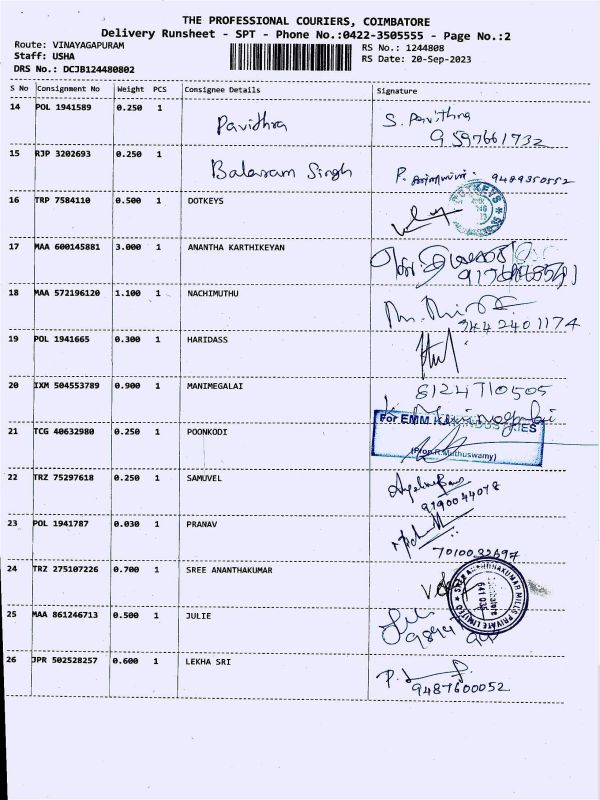 THE PROFESSIONAL COURIERS, COIMBATORE
Delivery Runsheet - SPT - Phone No.:0422-3505555 - Page No.:2
Route: VINAYAGAPURAM
RS No.: 1244808
Staff: USHA
RS Date: 20-Sep-2023
DRS No.: DCJB124480802
S No Consignment No Weight PCS Consignee Details Signature
14 POL 1941589 0.250 1 Pavithra S. Pavithra
9597661732
15 RJP 3202693 0.250 1 Balaram Singh P. 9489350552
16 TRP 7584110 0.500 1 DOTKEYS
DOTKEYS
17 MAA 600145881 3.000 1 ANANTHA KARTHIKEYAN
18 MAA 572196120 1.100 1 NACHIMUTHU
9442401174
19 POL 1941665 0.300 1 HARIDASS
20 IXM 504553789 0.900 1 MANIMEGALAI 8124710505
21 TCG 40632980 0.250 1 POONKODI For EMM
(Prop.R.Muthuswamy)
22 TRZ 75297618 0.250 1 SAMUVEL
9190044078
23 POL 1941787 0.030 1 PRANAV
24 TRZ 275107226 0.700 1 SREE ANANTHAKUMAR
MILLS PRIVATE LIMITED
25 MAA 861246713 0.500 1 JULIE
26 JPR 502528257 0.600 1 LEKHA SRI P.
9487600052